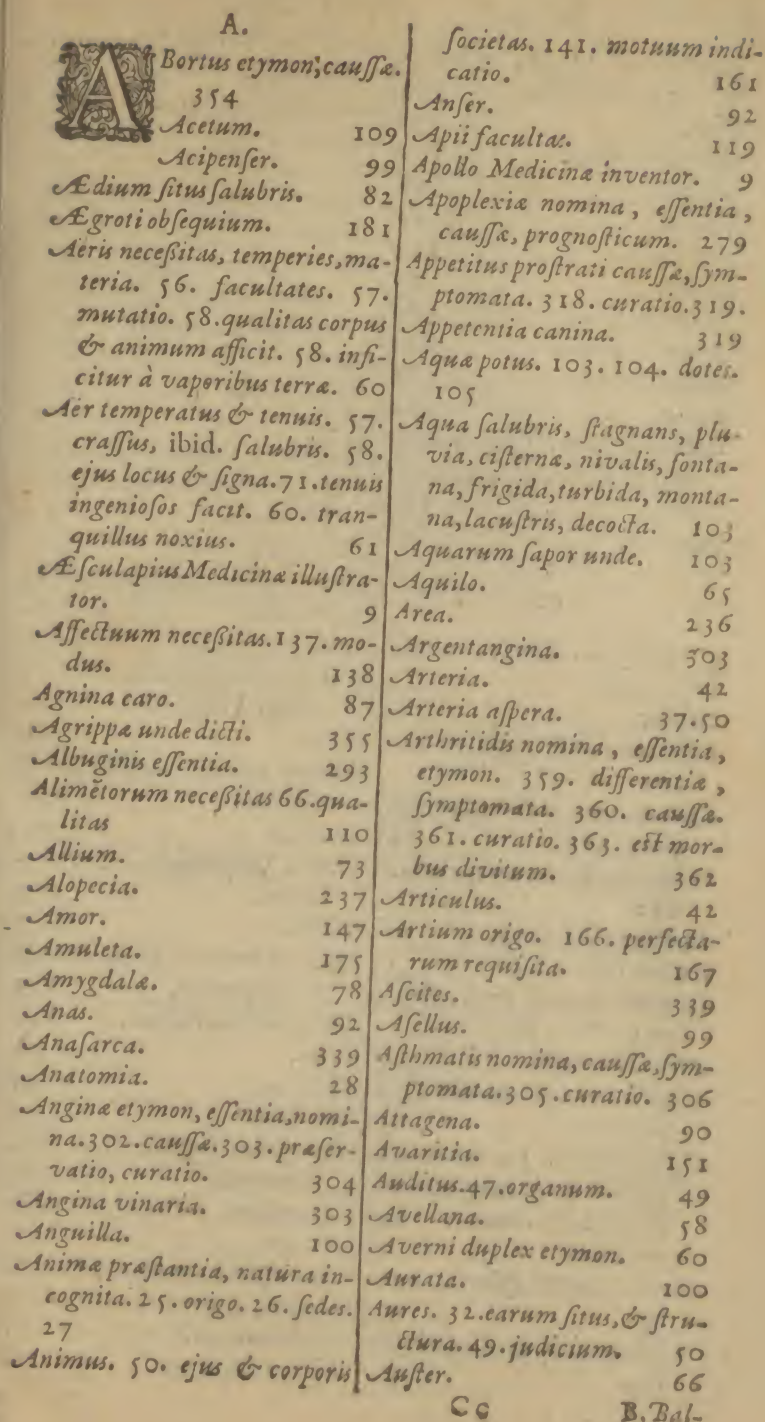 A.
ABortus etymon, cauſſæ.
354
Acetum. 109
Acipenſer. 99
Ædium ſitus ſalubris. 82
Ægroti obſequium. 181
Aeris neceſſitas, temperies, ma-
teria. 56. facultates. 57.
mutatio. 58. qualitas corpus
& animum afficit. 58. infi-
citur à vaporibus terræ. 60
Aer temperatus & tenuis. 57.
craſſus, ibid. ſalubris. 58.
ejus locus & ſigna. 71. tenuis
ingenioſos facit. 60. tran-
quillus noxius. 61
Æſculapius Medicinæ illuſtra-
tor. 9
Affectuum neceſſitas. 137. mo-
dus. 138
Agnina caro. 87
Agrippæ unde dicti. 355
Albuginis eſſentia. 293
Alimētorum neceſſitas 66. qua-
litas 110
Allium. 73
Alopecia. 237
Amor. 147
Amuleta. 175
Amygdalæ. 78
Anas. 92
Anaſarca. 339
Anatomia. 28
Anginæ etymon, eſſentia, nomi-
na. 302. cauſſæ. 303. præſer-
vatio, curatio. 304
Angina vinaria. 303
Anguilla. 100
Animæ præſtantia, natura in-
cognita. 25. origo. 26. ſedes.
27
Animus. 50. ejus & corporis
ſocietas. 141. motuum indi-
catio. 161
Anſer. 92
Apii facultas. 119
Apollo Medicinæ inventor. 9
Apoplexiæ nomina, eſſentia,
cauſſæ, prognoſticum. 279
Appetitus proſtrati cauſſæ, ſym-
ptomata. 318. curatio. 319.
Appetentia canina. 319
Aquæ potus. 103. 104. dotes.
105
Aqua ſalubris, ſtagnans, plu-
via, ciſternæ, nivalis, fonta-
na, frigida, turbida, monta-
na, lacuſtris, decocta. 103
Aquarum ſapor unde. 103
Aquilo. 65
Area. 236
Argentangina. 303
Arteria. 42
Arteria aſpera. 37. 50
Arthritidis nomina, eſſentia,
etymon. 359. differentiæ,
ſymptomata. 360. cauſſæ.
361. curatio. 363. eſt mor-
bus divitum. 362
Articulus. 42
Artium origo. 166. perfecta-
rum requiſita. 167
Aſcites. 339
Aſellus. 99
Aſthmatis nomina, cauſſæ, ſym-
ptomata. 305. curatio. 306
Attagena. 90
Avaritia. 151
Auditus. 47. organum. 49
Avellana. 58
Averni duplex etymon. 60
Aurata. 100
Aures. 32. earum ſitus, & ſtru-
ctura. 49. judicium. 50
Auſter. 66
Cc B. Bal-